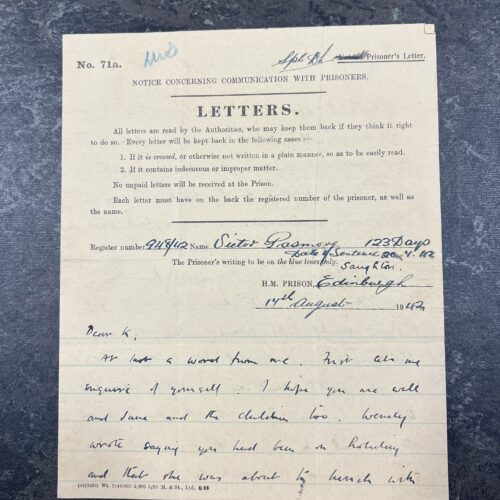 No. 71a.
Spl. Ltr. Prisoner's Letter.
NOTICE CONCERNING COMMUNICATION WITH PRISONERS.
LETTERS.
All letters are read by the Authorities, who may keep them back if they think it right
to do so. Every letter will be kept back in the following cases :—
1. If it is crossed, or otherwise not written in a plain manner, so as to be easily read.
2. If it contains indecorous or improper matter.
No unpaid letters will be received at the Prison.
Each letter must have on the back the registered number of the prisoner, as well as
the name.
Register number 948/42 Name Victor Pasmore 123 Days
Date of Sentence 20. 4. 42
The Prisoner's writing to be on the blue lines only.
Saughton.
H.M. PRISON, Edinburgh
14th August 1942
Dear K,
At last a word from me. First let me
enquire of yourself : I hope you are well
and June and the children too. Wendy
wrote saying you had been on holiday
and that she was about to lunch with